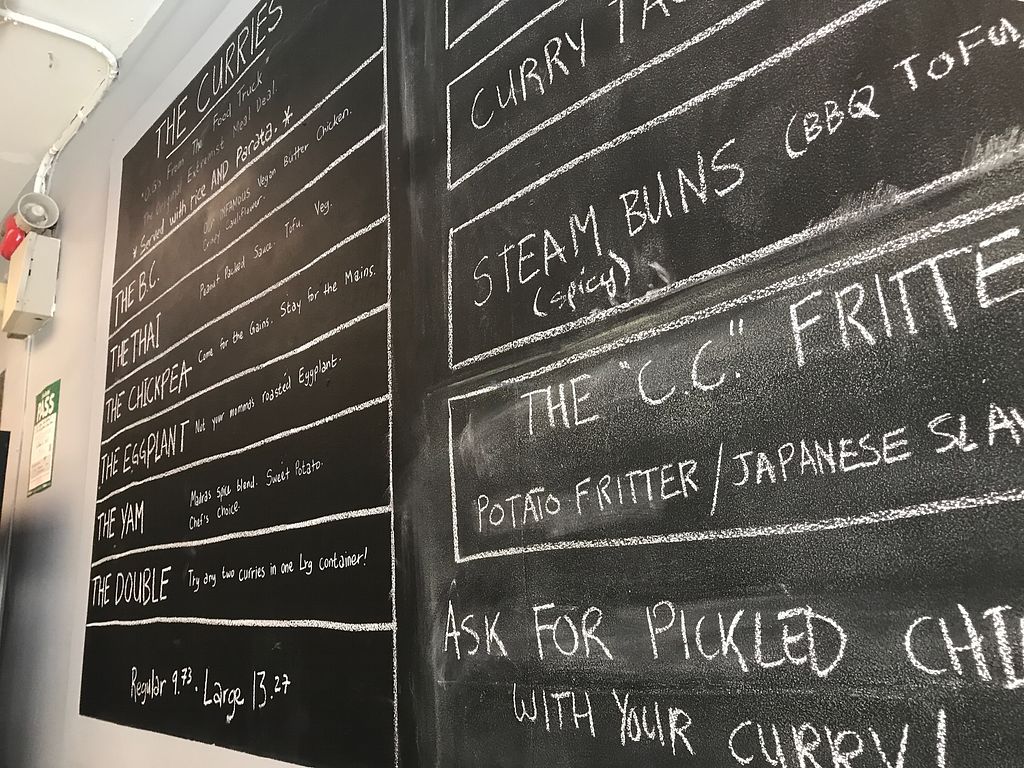 THE CURRIES
From The Food Truck"
The Original Extremist Meal Deal.
* Served with rice AND Parata. *
THE B.C.
OUR INFAMOUS Vegan Butter Chicken.
Crazy Cauliflower.
THE THAI
Peanut Packed Sauce. Tofu. Veg.
THE CHICKPEA
Come for the Gains. Stay for the Mains.
THE EGGPLANT
Not your momma's roasted Eggplant.
THE YAM
Madras spice blend. Sweet Potato.
Chef's choice.
THE DOUBLE
Try any two curries in one Lrg container!
Regular 9.73. Large 13.27
CURRY
STEAM BUNS (BBQ TOFU
(spicy)
THE "C.C." FRITTE
POTATO FRITTER / JAPANESE SLAW
ASK FOR PICKLED
WITH YOUR CURRY!
PASS